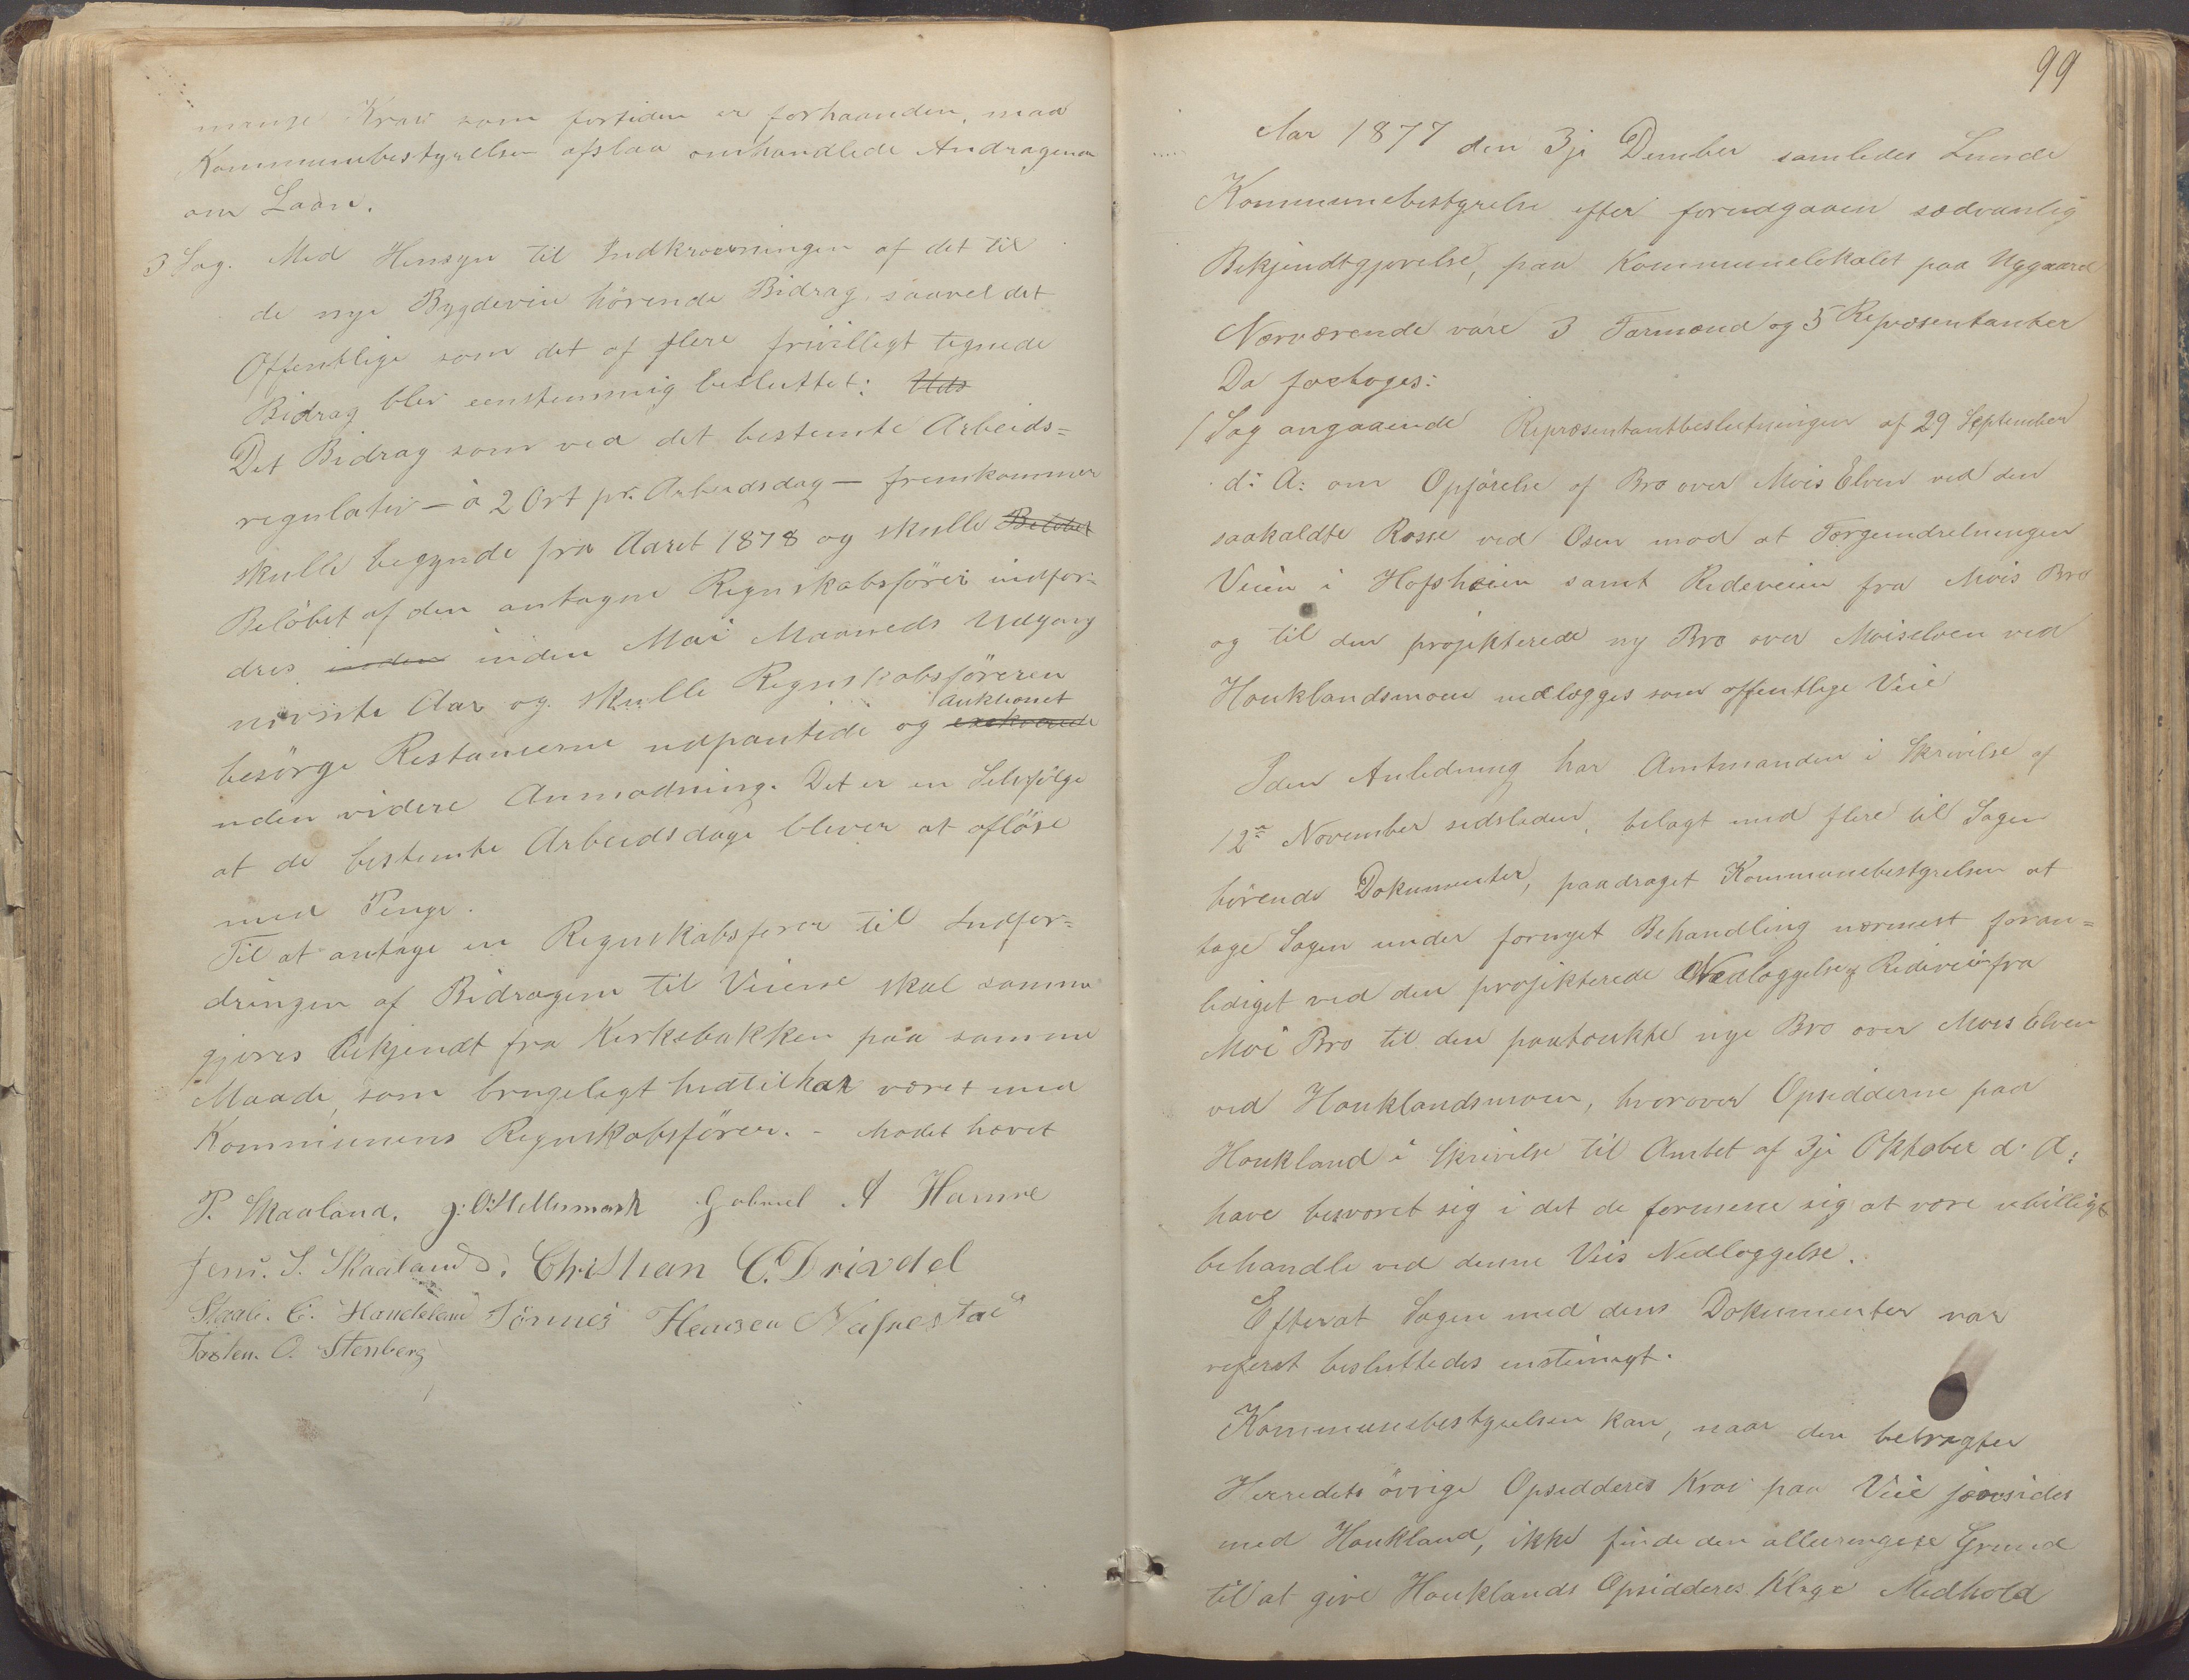 mange Krav som fortiden er forhaanden, maa
Kommunebestyrelsen afslaa omhandlede Andragender
om Laan.
3 Sag. Med Hensyn til Indkrævningen af det til
de nye Bygdeveie hörende Bidrag, saavel det
Offentlige som det af flere frivilligt tegnede
Bidrag blev eenstemmig besluttet: Uds
Det Bidrag som ved det bestemte Arbeids=
regulativ – à 2 Ort pr. Arbeidsdag – fremkommer
skulle begynde fra Aaret 1878 og skulle Belöbet
Belöbet af den antagne Regnskabsförer indfor=
dres inden inden Mai Maaneds Udgang
næviste Aar og skulle Regnskabsföreren
besörge Restancerne udpantede og auktioneret
uden videre Anmodning. Det er en Selvfölge
at de bestemte Arbeidsdage bliver at aflöse
med Penge.
Til at antage en Regnskabsförer til Indfor=
dringen af Bidragene til Veiene skal samme
gjöres bekjendt fra Kirkebakken paa samme
Maade, som brugeligt hidtil har været med
Kommunens Regnskabsförer. – Mödet hævet
P. Skaaland. J. O. Hellesmark Gabriel A Hamre
Jens. S. Skaaland. Christian C. Drivdal
C. Handeland Tönnes Hansen Næfnestad
Tosten. O. Stenberg
99
Aar 1877 den 3je Dember samledes Lunde
Kommunebestyrelse efter forudgaaen sædvanlig
Bekjendtgjørelse, paa Kommunelokalet paa Nygaard
Nærværende vare 3 Formænd og 5 Repræsentanter
Da foretoges:
1 Sag angaaende Repræsentantbeslutningen af 29 September
d: A: om Opförelse af Bro over Mois Elven ved den
saakaldte Rosse ved Osen mod at Torgeindretningen
Veien i Hofsheien samt Rideveien fra Mois Bro
og til den projekterede ny Bro over Moiselven ved
Houklandsmoen nedlægges som offentlige Veie
I den Anledning har Amtmanden i Skrivelse af
12te November sidsleden, belagt med flere til Sagen
hörende Dokumenter, paadraget Kommunebestyrelsen at
tage Sagen under fornyet Behandling nærmest foran=
lediget ved den projekterede Nedlæggelse af Rideveien fra
Moi Bro til den paatænkte nye Bro over Mois Elven
ved Houklandsmoen, hvorover Opsidderne paa
Houkland i Skrivelse til Amtet af 3je Oktober d. A:
have besværet sig i det de formene sig at være ubilligt
behandle ved denne Veis Nedlæggelse.
Efterat Sagen med dens Dokumenter var
referet besluttedes enstimigt.
Kommunebestyrelsen kan, naar den betragter
Herredets övrige Opsidderes Krav paa Veie jævsides
med Houkland, ikke finde den allerringeste Grund
til at give Houklands Opsidderes Klage Medhold